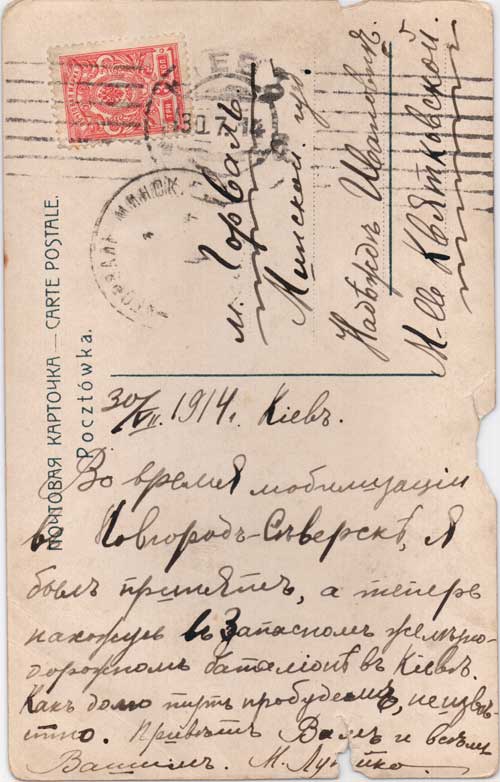 ПОЧТОВАЯ КАРТОЧКА — CARTE POSTALE.
Pocztówka.
30 7 14
м. Горваль
Минской губ.
Надеждѣ Ивановнѣ
М-ль Квятковской.
30/VII. 1914 г. Кіевъ.
Во время мобилизаціи
въ Новгородъ-Сѣверскѣ, я
былъ принятъ, а теперь
нахожусь въ запасномъ желѣзно-
дорожномъ баталіонѣ въ Кіевѣ.
Какъ долго тутъ пробудемъ, неизвѣ-
стно. Привѣтъ Вамъ и всѣмъ
Вашимъ. М.